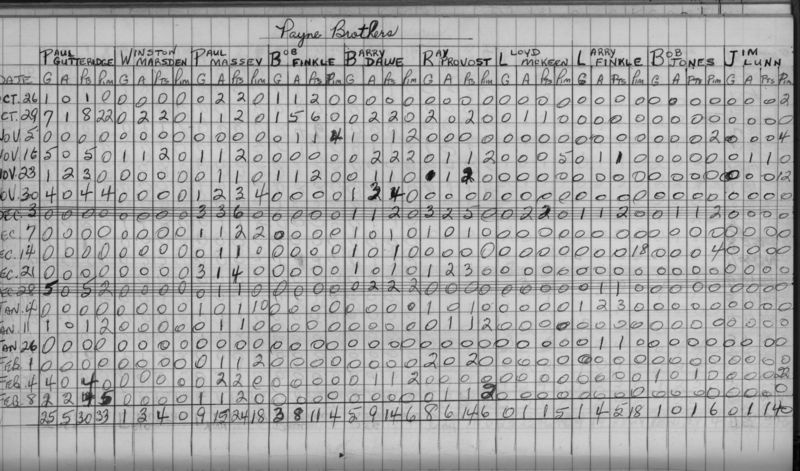 Payne Brothers
PAUL GUTTERIDGE WINSTON MARSDEN PAUL MASSEY BOB FINKLE BARRY DAWE RAY PROVOST LLOYD MCKEEN LARRY FINKLE BOB JONES JIM LUNN
DATE G A Pts Pim G A Pts Pim G A Pts Pim G A Pts Pim G A Pts Pim G A Pts Pim G A Pts Pim G A Pts Pim G A Pts Pim G A Pts Pim
OCT. 26 1 0 1 0 0 0 0 0 0 2 2 0 1 1 2 0 0 0 0 0 0 0 0 0 0 0 0 0 0 0 0 0 0 0 0 0 0 0 0 2
OCT. 29 7 1 8 22 0 2 2 0 1 1 2 0 1 5 6 0 0 2 2 0 2 0 2 0 0 1 1 0 0 0 0 0 0 0 0 0 0 0 0 0
NOV. 5 0 0 0 0 0 0 0 0 0 0 0 0 0 1 1 4 1 0 1 2 0 0 0 0 0 0 0 0 0 0 0 0 0 0 0 2 0 0 0 4
NOV. 16 5 0 5 0 1 1 2 0 1 1 2 0 0 0 0 0 0 2 2 2 0 1 1 2 0 0 0 5 0 1 1 0 0 0 0 0 0 1 1 0
NOV. 23 1 2 3 0 0 0 0 0 0 1 1 0 1 1 2 0 0 1 1 0 1 2 0 0 0 0 0 0 0 0 0 0 0 0 0 0 0 0 12
NOV. 30 4 0 4 4 0 0 0 0 1 2 3 4 0 0 0 0 1 3 4 0 0 0 0 0 0 0 0 0 0 0 0 0 0 0 0 0 0 0 0 0
DEC. 3 0 0 0 0 0 0 0 0 3 3 6 0 0 0 0 0 1 1 2 0 3 2 5 0 0 2 2 0 1 1 2 0 0 1 1 2 0 0 0 0
DEC. 7 0 0 0 0 0 0 0 0 1 1 2 2 0 0 0 0 1 0 1 0 1 0 1 0 0 0 0 0 0 0 0 0 0 0 0 0 0 0 0 0
DEC. 14 0 0 0 0 0 0 0 0 0 1 1 0 0 0 0 0 1 0 1 0 0 0 0 0 0 0 0 0 0 0 0 18 0 0 0 4 0 0 0 0
DEC. 21 0 0 0 0 0 0 0 0 3 1 4 0 0 0 0 0 1 0 1 0 1 2 3 0 0 0 0 0 0 0 0 0 0 0 0 0 0 0 0 0
DEC. 28 5 0 5 2 0 0 0 0 0 1 1 0 0 0 0 0 0 2 2 2 0 0 0 0 0 0 0 0 0 1 1 0 0 0 0 0 0 0 0 0
JAN. 4 0 0 0 0 0 0 0 0 1 0 1 10 0 0 0 0 0 0 0 0 1 0 1 0 0 0 0 0 1 2 3 0 0 0 0 0 0 0 0 0
JAN. 11 1 0 1 2 0 0 0 0 0 1 1 0 0 0 0 0 0 0 0 0 0 1 1 2 0 0 0 0 0 0 0 0 0 0 0 0 0 0 0 0
JAN 26 0 0 0 0 0 0 0 0 0 0 0 0 0 0 0 0 0 0 0 0 0 0 0 0 0 0 0 0 0 1 1 0 0 0 0 0 0 0 0 0
FEB. 1 0 0 0 0 0 0 0 0 0 1 1 2 0 0 0 0 0 0 0 0 2 0 2 0 0 0 0 0 0 0 0 0 0 0 0 0 0 0 0 0
FEB. 4 4 0 4 0 0 0 0 0 0 2 2 0 0 0 0 0 0 1 1 2 0 0 0 0 0 0 0 0 0 0 0 0 1 0 1 0 0 0 0 22
FEB. 8 2 2 4 5 0 0 0 0 1 1 2 0 0 0 0 0 0 0 0 0 0 1 1 2 0 0 0 0 0 0 0 0 0 0 0 0 0 0 0 0
25 5 30 33 1 3 4 0 9 15 24 18 3 8 11 4 5 9 14 6 8 6 14 6 0 1 1 5 1 4 5 18 1 0 1 6 0 1 1 40